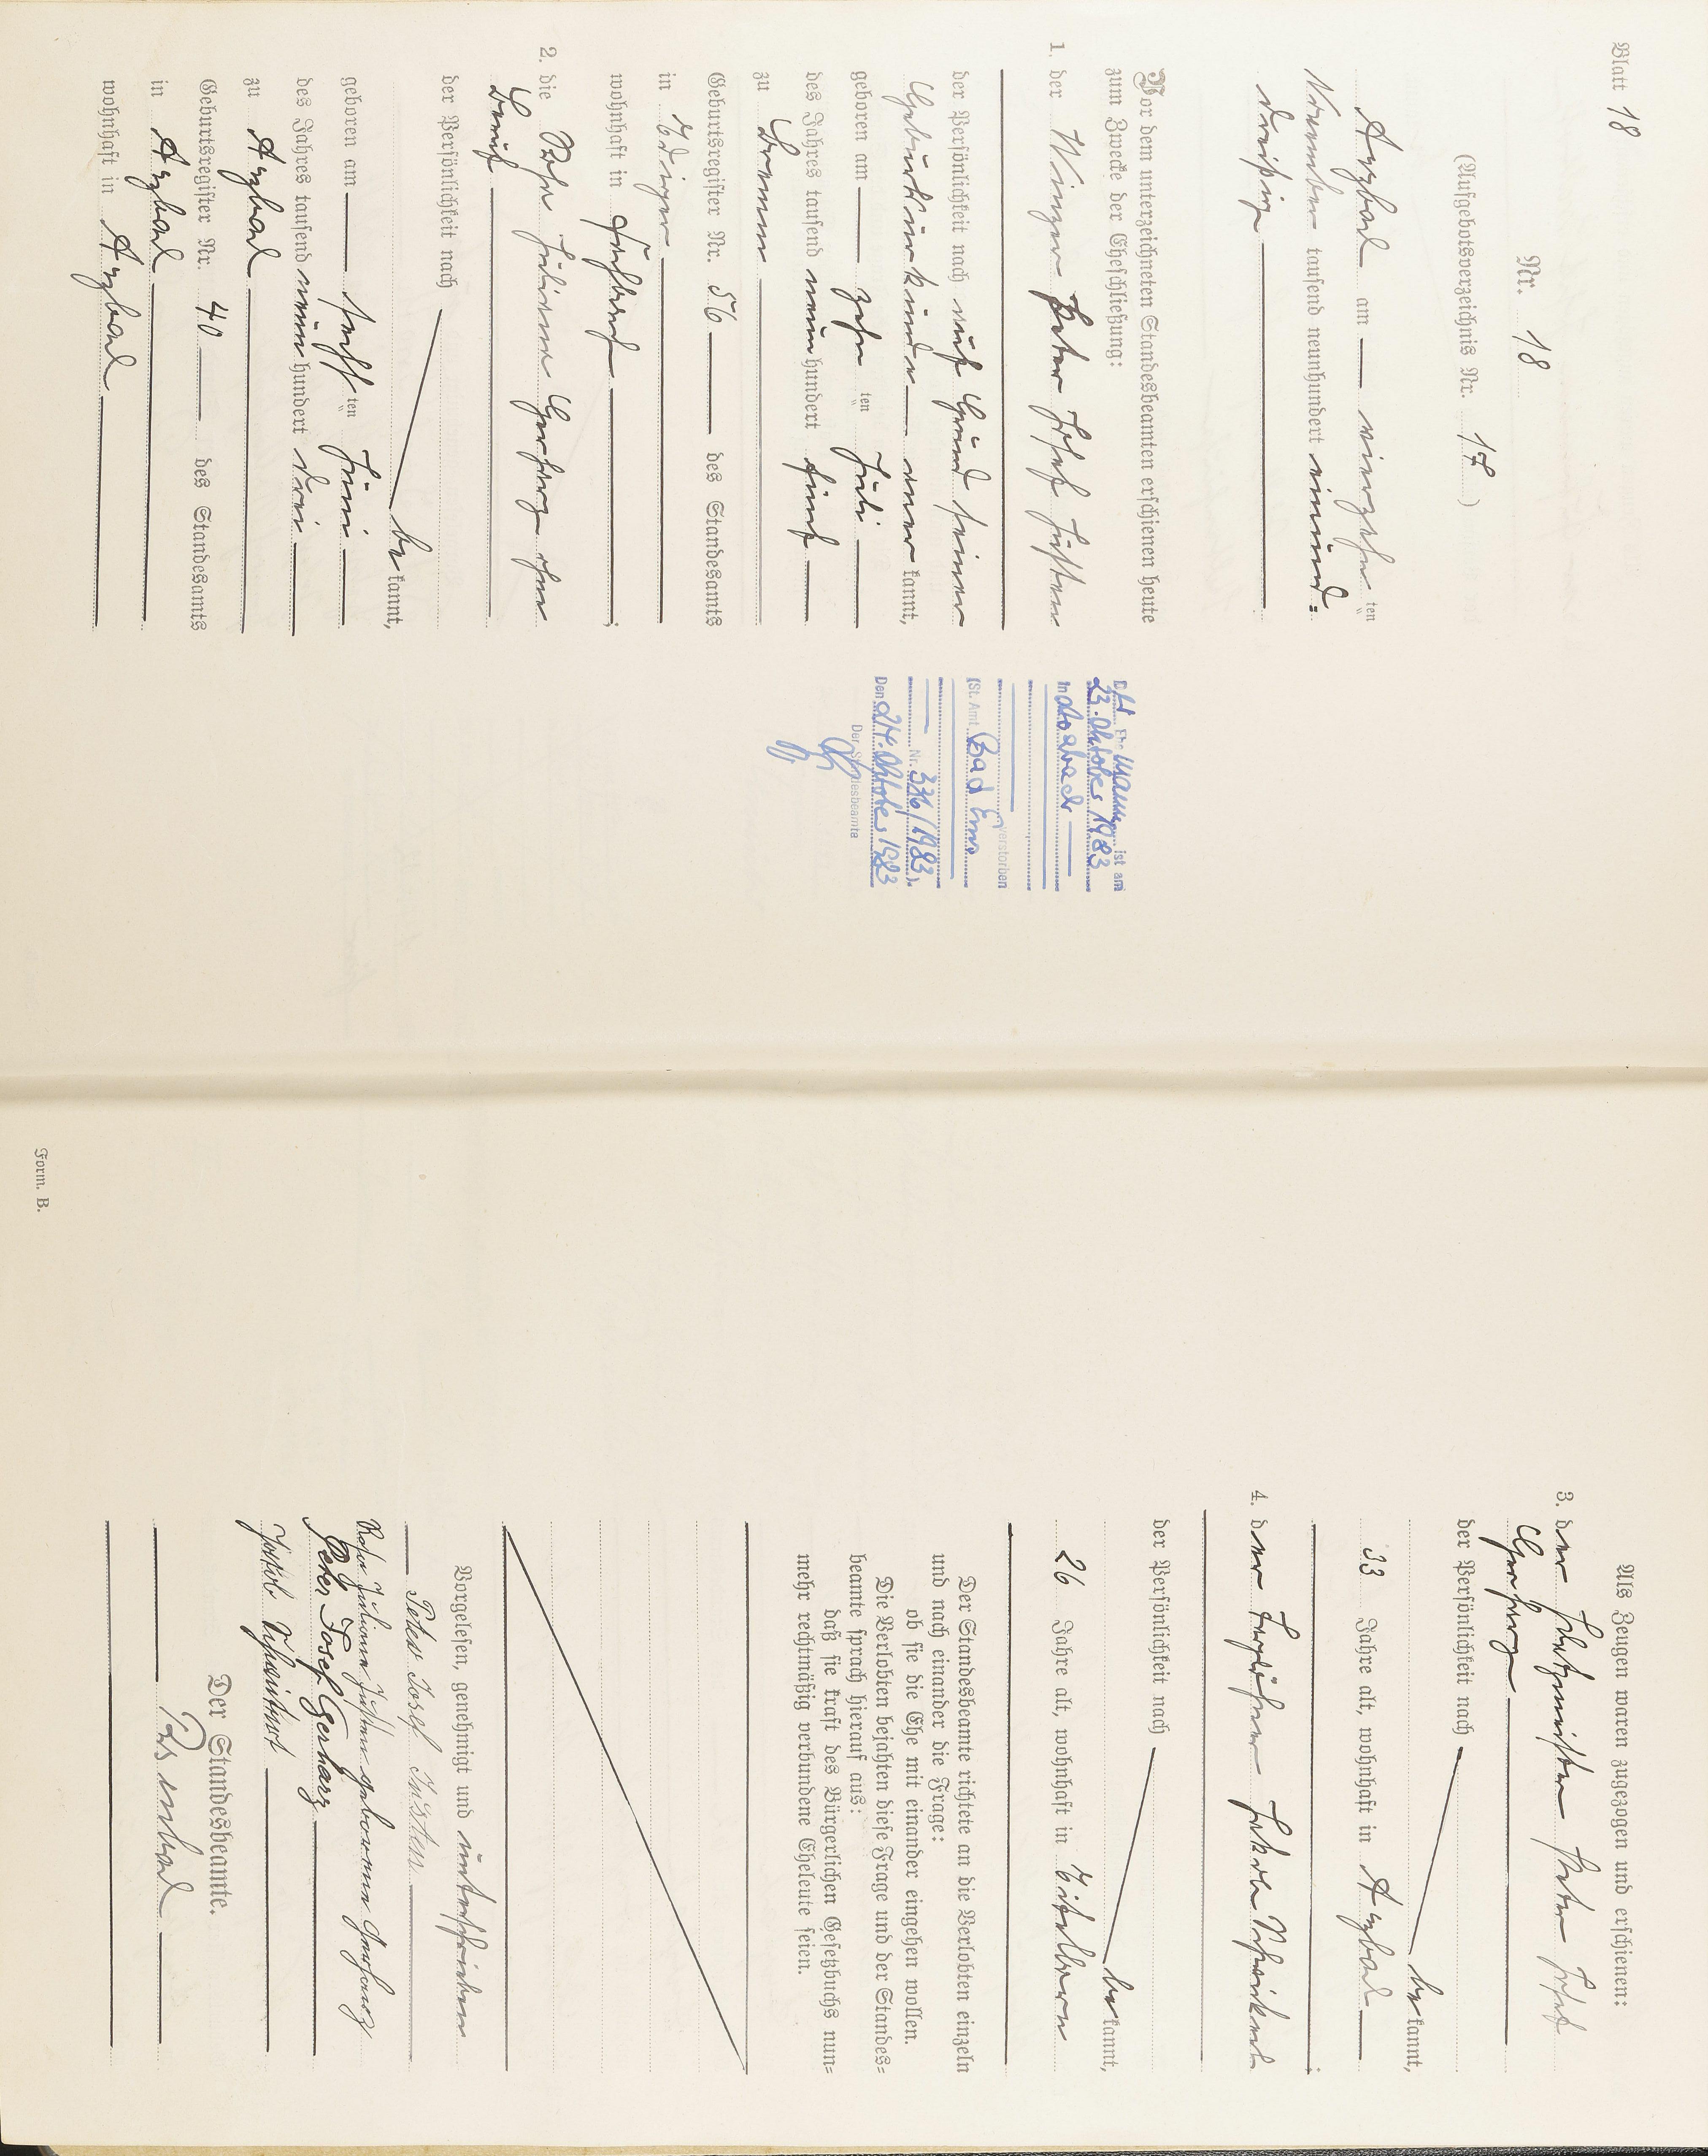 Blatt 18
Nr. 18
(Aufgebotsverzeichnis Nr. 17)
Arzbach am vierzehn ten
November tausend neunhundert einund-
dreißig
Vor dem unterzeichneten Standesbeamten erschienen heute
zum Zwecke der Eheschließung:
1. der Winzer Peter Josef Justen
der Persönlichkeit nach auf Grund seiner
Geburtsurkunde anerkannt,
geboren am zehn ten Juli
des Jahres tausend neunhundert fünf
zu Bremm
Geburtsregister Nr. 56 des Standesamts
in Ediger
wohnhaft in
2. die Rosa Juliana Gerharz ohne
Beruf
der Persönlichkeit nach
bekannt,
geboren am sechs ten Juni
des Jahres tausend neunhundert drei
zu Arzbach
Geburtsregister Nr. 40 des Standesamts
in Arzbach
wohnhaft in Arzbach
Ehemann ist am
23. Oktober 1983
in
verstorben
(St. Amt Bad Ems
Nr. 336/1983).
Den 24. Oktober 1983
Der Standesbeamte
Als Zeugen waren zugezogen und erschienen:
3. der Peter Josef
Gerharz
der Persönlichkeit nach
bekannt,
33 Jahre alt, wohnhaft in Arzbach
4. der Jakob
der Persönlichkeit nach
bekannt,
26 Jahre alt, wohnhaft in Eitelborn
Der Standesbeamte richtete an die Verlobten einzeln
und nach einander die Frage:
ob sie die Ehe mit einander eingehen wollen.
Die Verlobten bejahten diese Frage und der Standes-
beamte sprach hierauf aus:
daß sie kraft des Bürgerlichen Gesetzbuchs nun-
mehr rechtmäßig verbundene Eheleute seien.
Vorgelesen, genehmigt und unterschrieben
Peter Josef Justen
Rosa Juliana Justen geborene Gerharz
Peter Josef Gerharz
Jakob
Der Standesbeamte.
Form. B.